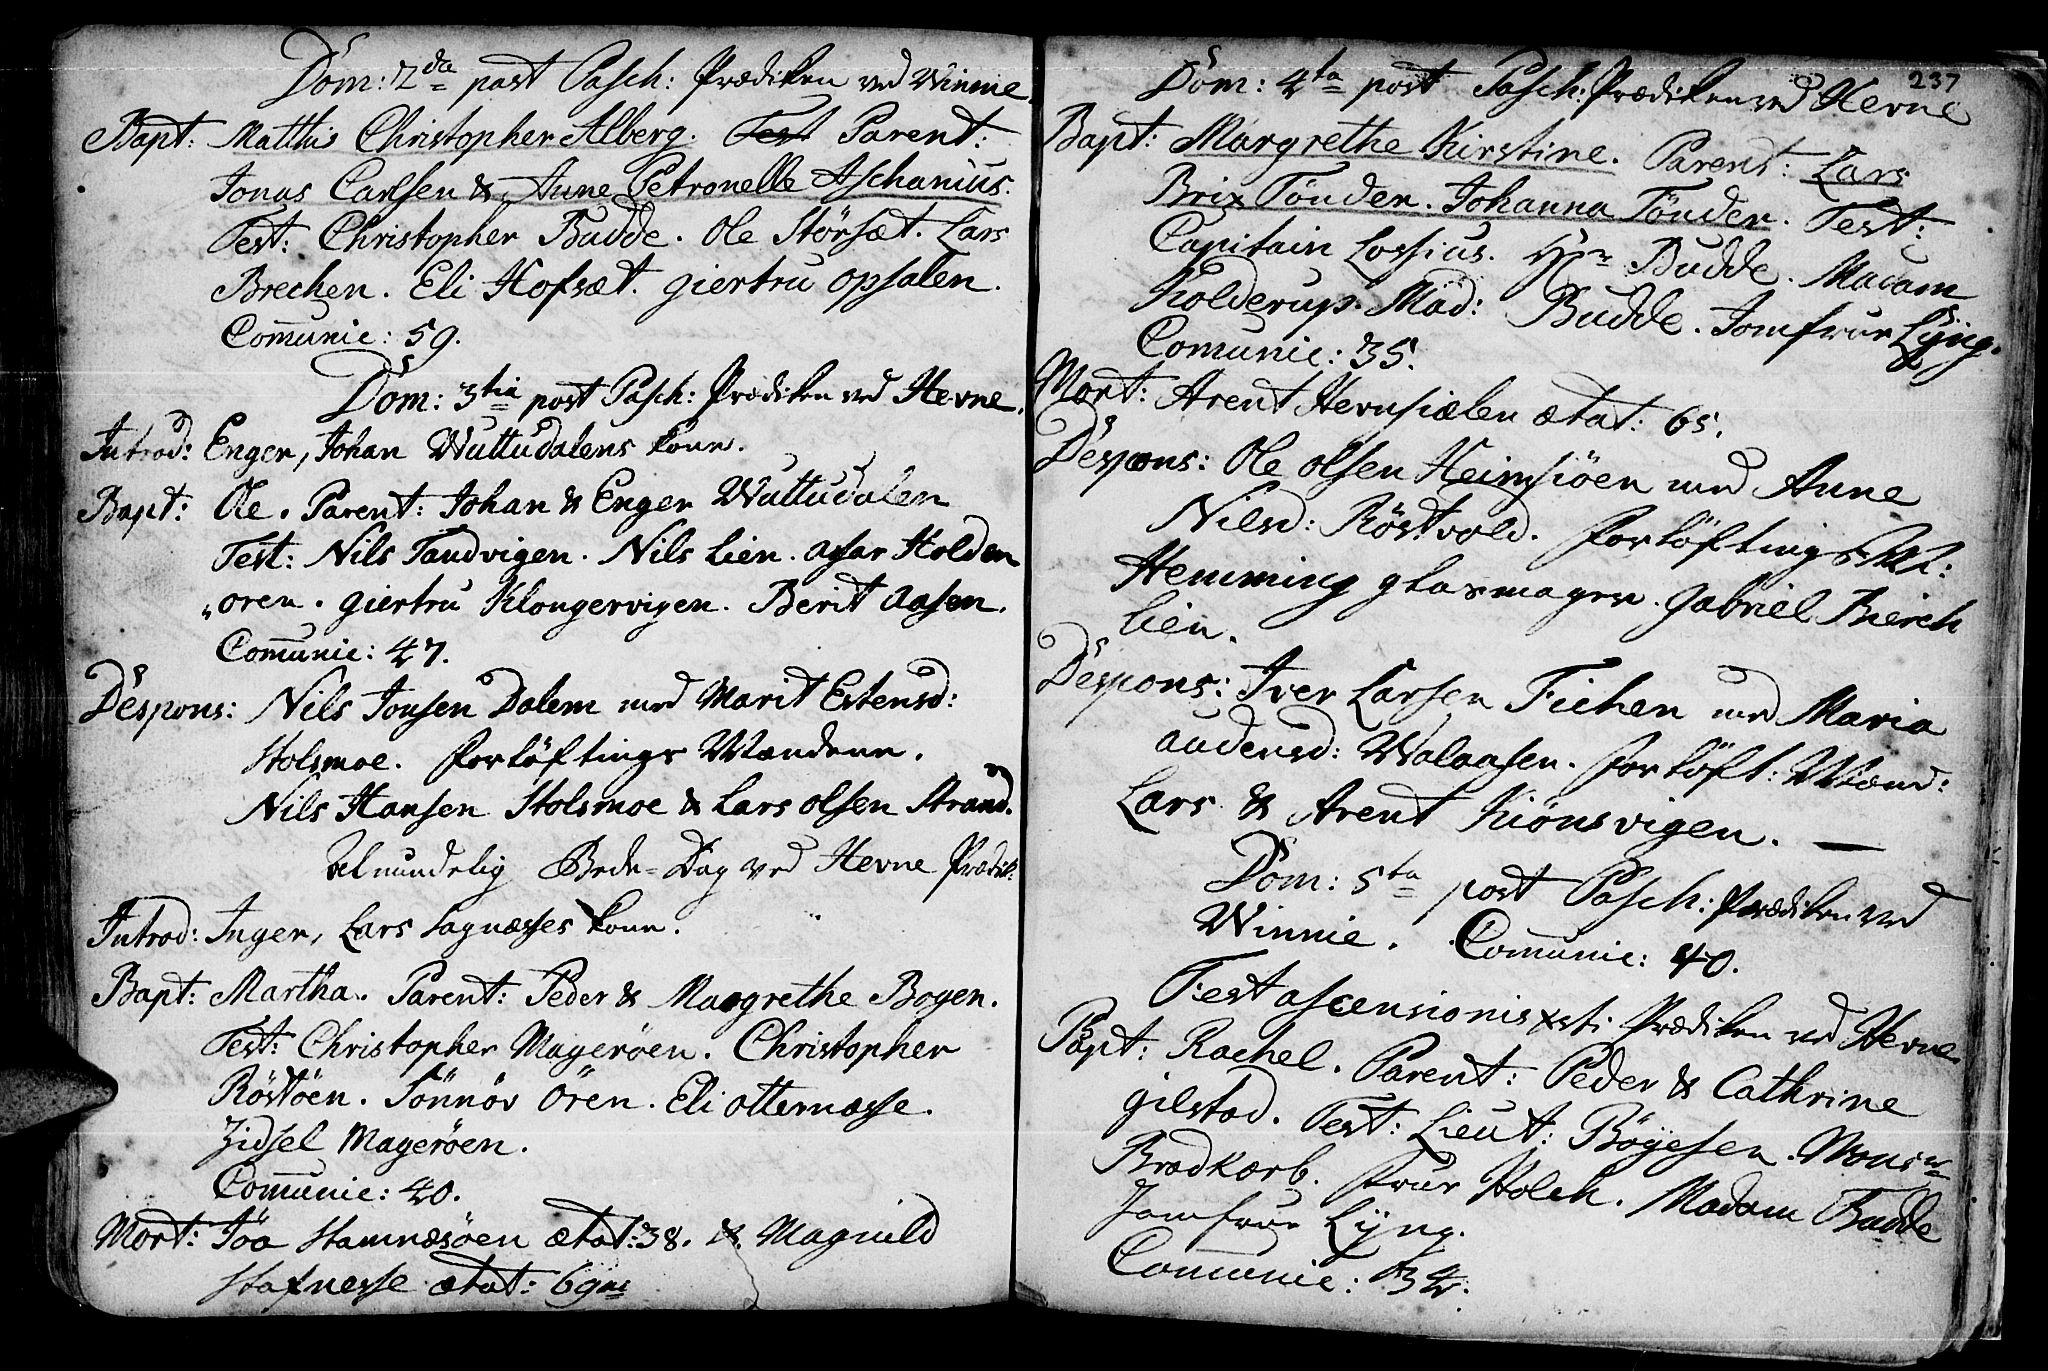 Dom: 2da post Pasch: Prædiken ved Winnie.
Bapt: Matthis Christopher Alberg. Test Parent:
Jonas Carlsen & Anne Petronelle Aschanius.
Test: Christopher Budde. Ole Störsæt. Lars
Brechen. Eli Hofsæt. giertru opsalen.
Comunic: 59.
Dom: 3tia post Pasch: Prædiken ved Hevne.
Introd: Enger, Johan Wuttudalens kone.
Bapt: Ole. Parent: Johan & Enger Wuttudalen
Test: Nils Tandvigen. Nils Lien. assar Holden
„oren. giertru Klongervigen. Berit Aasen.
Comunic: 47.
Despons: Nils Jonsen Dalem med Marit Estensd:
Stolsmoe. Forlöftings Mændene.
Nils Hansen Stolsmoe & Lars olsen Strand.
Almindelig Bede-Dag ved Hevne Prædik:
Introd: Inger, Lars Sagnæsses kone.
Bapt: Martha. Parent: Peder & Margrethe Bogen.
Test: Christopher Magerøen. Christopher
Röstöen. Sönnöv Ören. Eli otternæsse.
Zidsel Magerøen.
Comunic: 40.
Mort: Jöa Stamnæsöen ætat: 38. & Magnild
Stafnesse ætat: 69
237
Dom: 4ta post Pasch: Prædiken ved Hevne
Bapt: Margrethe Kirstine. Parent: Lars
Brix Tönder. Johanna Tönder. Test:
Capitain Lossius. Hr Budde. Madam
Kolderup. Mad: Budde. Jomfrue Lyng.
Comunic: 35.
Mort: Arent Hevnsiælen ætat: 65.
Despons: Ole olsen Heimsiöen med Anne
Nilsd: Röstvold. Forlöftings M:
Hemming glasmager. Gabriel Bierch
Lien.
Despons: Iver Larsen Fiehen med Maria
audensd: Walaasen. Forlöft: Mænd:
Lars & Arent Kiönsvigen. —
Dom: 5ta post Pasch: Prædiken ved
Winnie. Comunic: 40.
Fest ascensionis xsti Prædiken ved Hevne
Bapt: Rachel. Parent: Peder & Cathrine
gilstad. Test: Lieut: Böyesen. Monsr
Bredkærb. Frue Holch. Madam Budde
Jomfrue Lyng.
Comunic: 34.